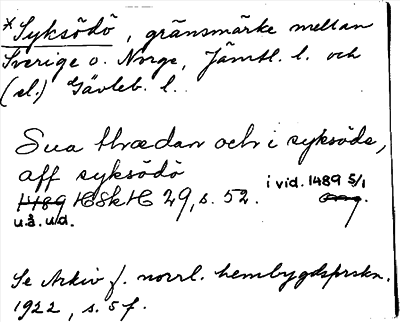 *Syksödö, gränsmärke mellan
Sverige o. Norge, Jämtl. l. och
(el.) Gävleb. l.
Sua thrædan och i syksöde,
aff syksödö
1489 HSkH 29, s. 52. i vid. 1489 5/1
u.å. u.d. omg.
Se Arkiv f. norrl. hembygdsforskn.
1922, s. 5 f.